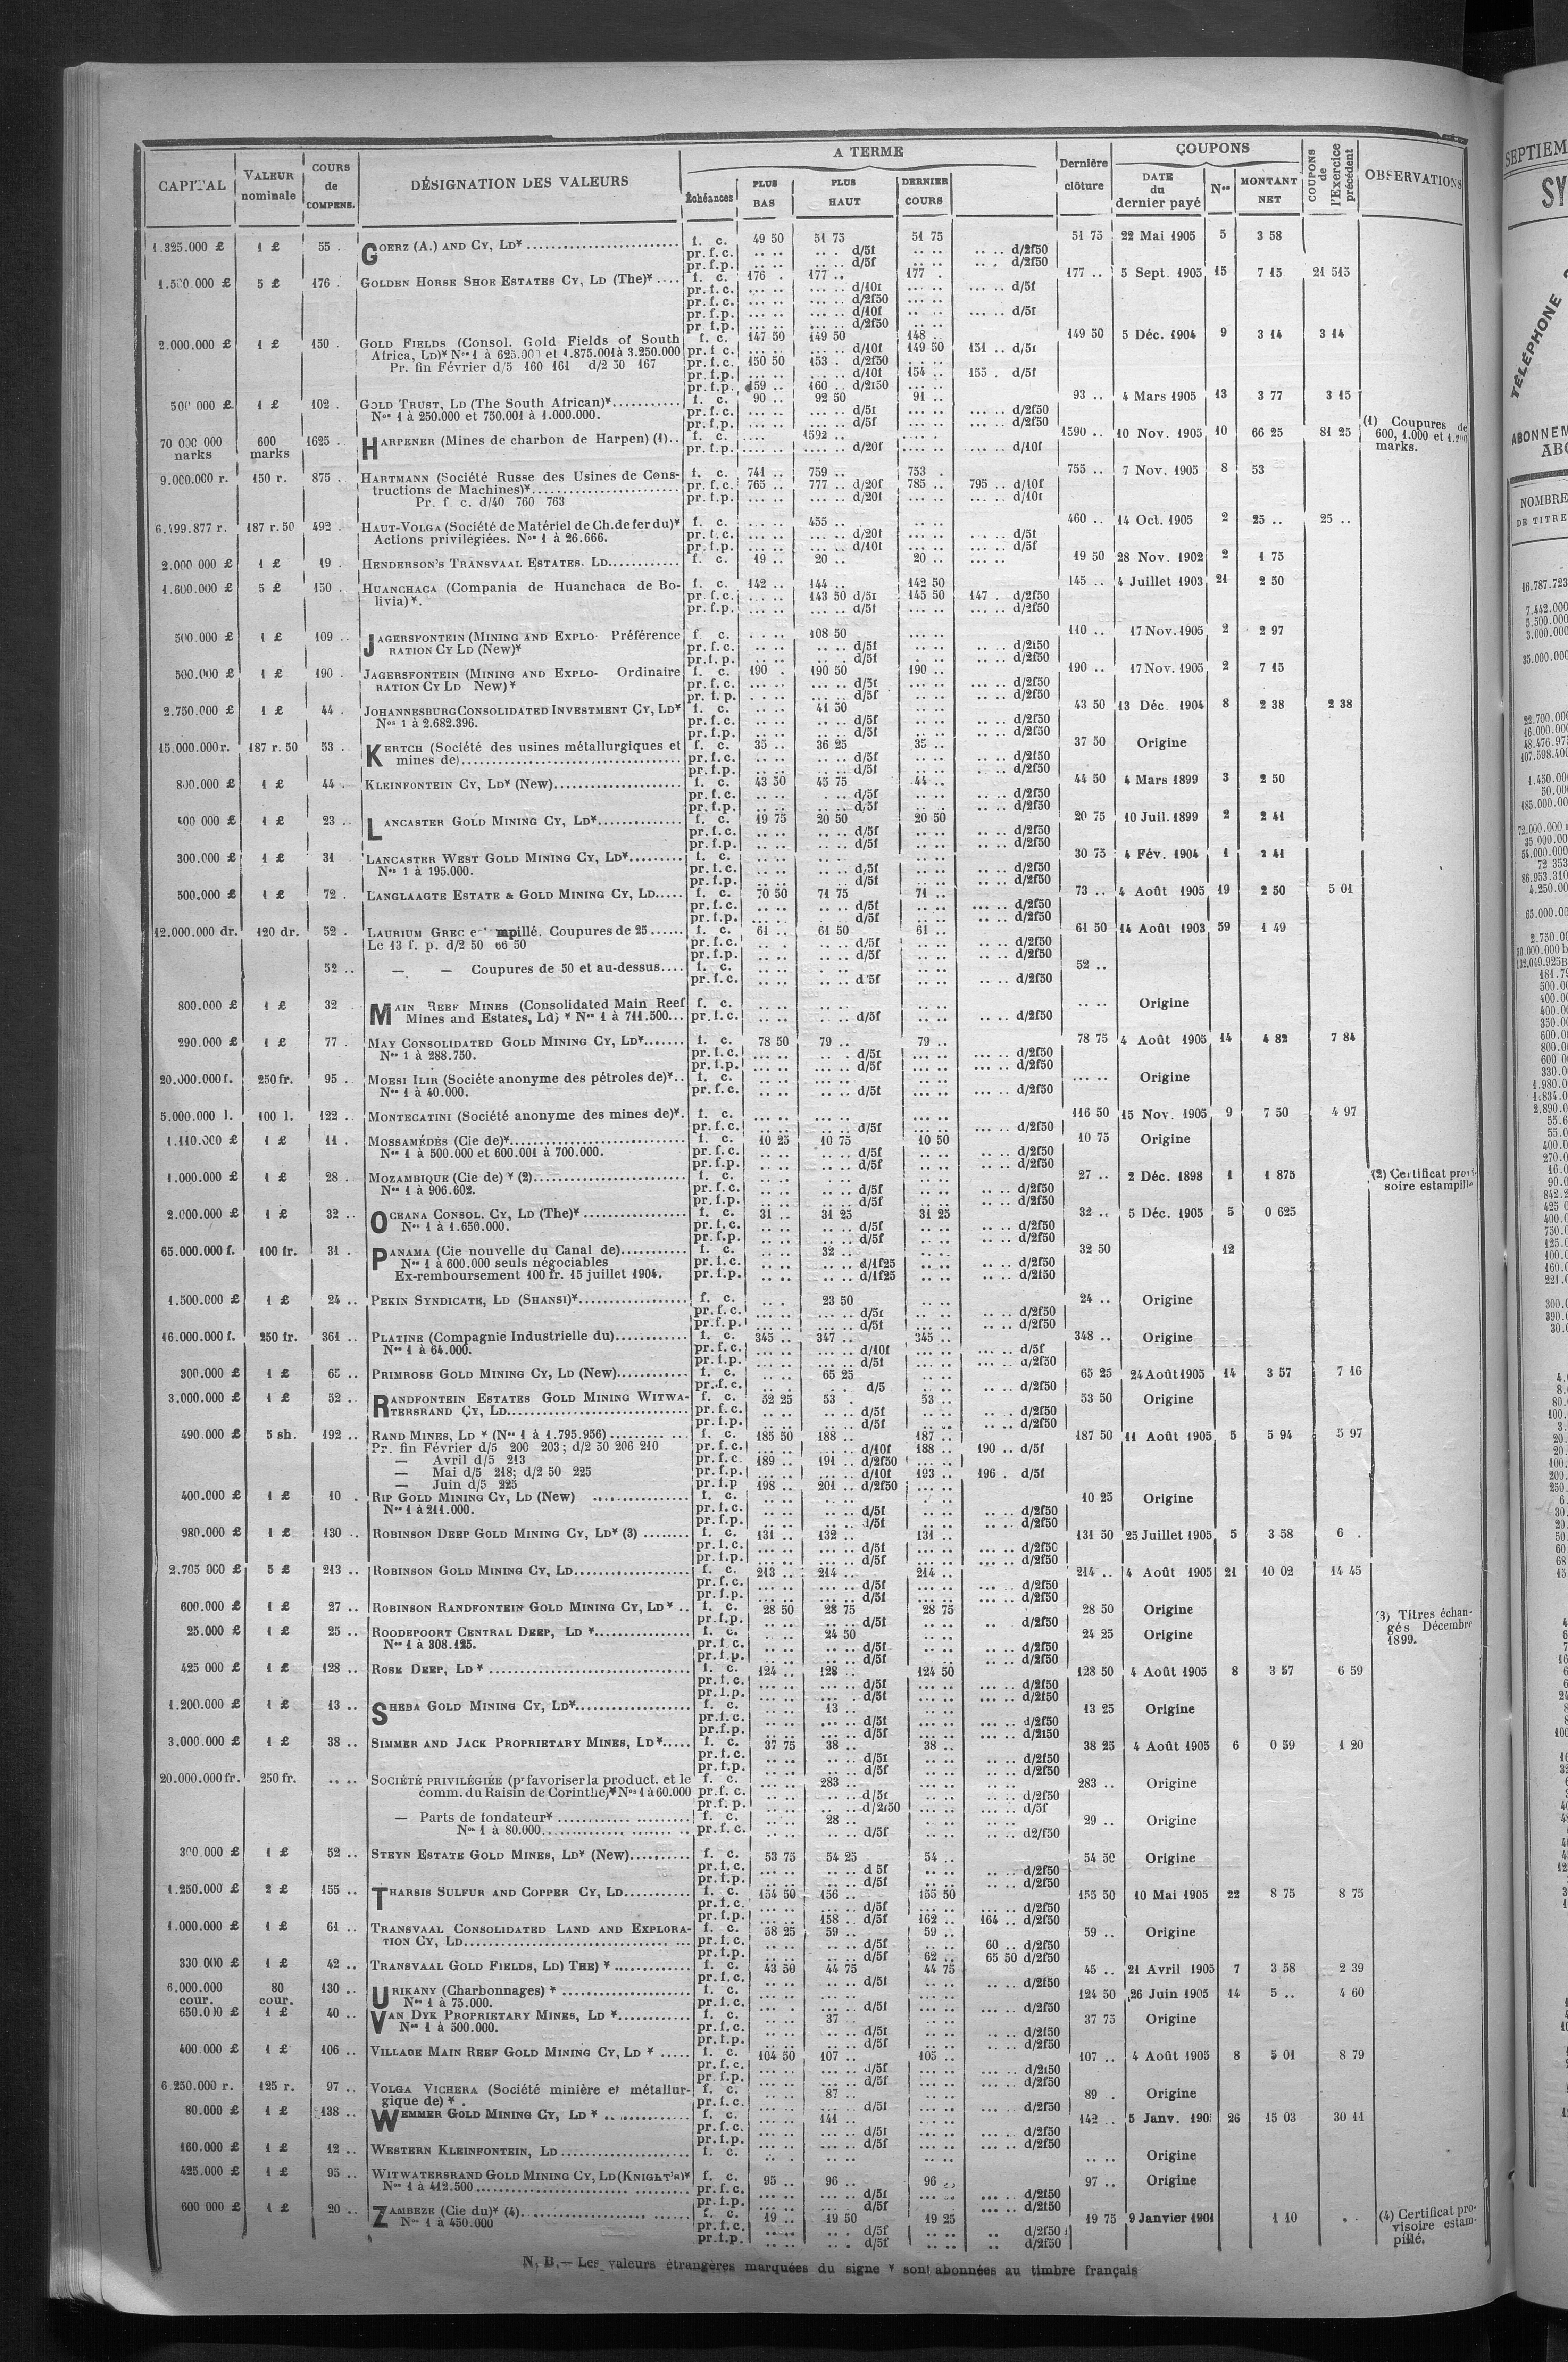 A TERME
COUPONS
CAPITAL VALEUR nominale COURS de COMPENS. DÉSIGNATION DES VALEURS Échéances PLUS BAS PLUS HAUT DERNIER COURS Dernière clôture DATE du dernier payé Nos MONTANT NET COUPONS de l'Exercice précédent OBSERVATIONS
1.325.000 £ 1 £ 55 . GOERZ (A.) AND CY, LD* f. c. 49 50 51 75 51 75 51 75 22 Mai 1905 5 3 58
pr. f. c. d/5f d/2f50
pr. f. p. d/5f d/2f50
1.500.000 £ 5 £ 176 . GOLDEN HORSE SHOE ESTATES CY, LD (The)* f. c. 176 . 177 .. 177 . 177 .. 5 Sept. 1905 15 7 15 21 515
pr. f. c. d/10f d/5f
pr. f. c. d/2f50
pr. f. p. d/10f d/5f
pr. f. p. d/2f50
2.000.000 £ 1 £ 150 . GOLD FIELDS (Consol. Gold Fields of South f. c. 147 50 149 50 148 .. 149 50 5 Déc. 1904 9 3 14 3 14
Africa, LD)* Nos 1 à 625.000 et 1.875.001 à 3.250.000 pr. f. c. d/10f 149 50 151 .. d/5f
Pr. fin Février d/5 160 161 d/2 50 167 pr. f. c. 150 50 153 . d/2f50
pr. f. p. d/10f 154 .. 155 . d/5f
pr. f. p. 159 .. 160 .. d/2f50
500 000 £ 1 £ 102 . GOLD TRUST, LD (The South African)* f. c. 90 .. 92 50 91 .. 93 .. 4 Mars 1905 13 3 77 3 15
Nos 1 à 250.000 et 750.001 à 1.000.000. pr. f. c. d/5f d/2f50
pr. f. p. d/5f d/2f50
70 000 000 marks 600 marks 1625 . HARPENER (Mines de charbon de Harpen) (1).. f. c. 1592 .. 1590 .. 10 Nov. 1905 10 66 25 81 25 (1) Coupures de 600, 1.000 et 1.200 marks.
pr. f. p. d/20f d/10f
9.000.000 r. 150 r. 875 . HARTMANN (Société Russe des Usines de Cons- f. c. 741 .. 759 .. 753 . 755 .. 7 Nov. 1905 8 53
tructions de Machines)* pr. f. c. 765 .. 777 .. d/20f 785 .. 795 .. d/10f
Pr. f c. d/40 760 763 pr. f. p. d/20f d/10f
6.499.877 r. 187 r. 50 492 . HAUT-VOLGA (Société de Matériel de Ch. de fer du)* f. c. 455 .. 460 .. 14 Oct. 1905 2 25 .. 25 ..
Actions privilégiées. Nos 1 à 26.666. pr. f. c. d/20f d/5f
pr. f. p. d/10f d/5f
2.000 000 £ 1 £ 19 . HENDERSON'S TRANSVAAL ESTATES. LD f. c. 19 .. 20 .. 20 .. 19 50 28 Nov. 1902 2 1 75
1.600.000 £ 5 £ 150 . HUANCHACA (Compania de Huanchaca de Bo- f. c. 142 .. 144 .. 142 50 145 .. 4 Juillet 1903 21 2 50
livia)*. pr. f. c. 143 50 d/5f 145 50 147 . d/2f50
pr. f. p. d/5f d/2f50
500.000 £ 1 £ 109 .. JAGERSFONTEIN (MINING AND EXPLO- Préférence f c. 108 50 110 .. 17 Nov. 1905 2 2 97
RATION CY LD (New)* pr. f. c. d/5f d/2f50
pr. f. p. d/5f d/2f50
500.000 £ 1 £ 190 . JAGERSFONTEIN (MINING AND EXPLO- Ordinaire f. c. 190 . 190 50 190 .. 190 .. 17 Nov. 1905 2 7 15
RATION CY LD New)* pr. f. c. d/5f d/2f50
pr. f. p. d/5f d/2f50
2.750.000 £ 1 £ 44 . JOHANNESBURG CONSOLIDATED INVESTMENT CY, LD* f. c. 41 50 43 50 13 Déc. 1904 8 2 38 2 38
Nos 1 à 2.682.396. pr. f. c. d/5f d/2f50
pr. f. p. d/5f d/2f50
15.000.000 r. 187 r. 50 53 .. KERTCH (Société des usines métallurgiques et f. c. 35 .. 36 25 35 .. 37 50 Origine
mines de) pr. f. c. d/5f d/2f50
pr. f. p. d/5f d/2f50
800.000 £ 1 £ 44 . KLEINFONTEIN CY, LD* (New) f. c. 43 50 45 75 44 .. 44 50 4 Mars 1899 3 2 50
pr. f. c. d/5f d/2f50
pr. f. p. d/5f d/2f50
400 000 £ 1 £ 23 .. LANCASTER GOLD MINING CY, LD* f. c. 19 75 20 50 20 50 20 75 10 Juil. 1899 2 2 41
pr. f. c. d/5f d/2f50
pr. f. p. d/5f d/2f50
300.000 £ 1 £ 31 LANCASTER WEST GOLD MINING CY, LD* f. c. 30 75 4 Fév. 1904 1 2 41
Nos 1 à 195.000. pr. f. c. d/5f d/2f50
pr. f. p. d/5f d/2f50
500.000 £ 1 £ 72 . LANGLAAGTE ESTATE & GOLD MINING CY, LD f. c. 70 50 71 75 71 .. 73 .. 4 Août 1905 19 2 50 5 01
pr. f. c. d/5f d/2f50
pr. f. p. d/5f d/2f50
12.000.000 dr. 120 dr. 52 . LAURIUM GREC mpillé. Coupures de 25 f. c. 61 .. 61 50 61 .. 61 50 14 Août 1903 59 1 49
Le 13 f. p. d/2 50 66 50 pr. f. c. d/5f d/2f50
pr. f. p. d/5f d/2f50
52 .. — — Coupures de 50 et au-dessus f. c. 52 ..
pr. f. c. d 5f d/2f50
800.000 £ 1 £ 32 . MAIN REEF MINES (Consolidated Main Reef f. c. Origine
Mines and Estates, Ld) * Nos 1 à 711.500 pr. f. c. d/5f d/2f50
290.000 £ 1 £ 77 . MAY CONSOLIDATED GOLD MINING CY, LD* f. c. 78 50 79 .. 79 .. 78 75 4 Août 1905 14 4 82 7 84
Nos 1 à 288.750. pr. f. c. d/5f d/2f50
pr. f. p. d/5f d/2f50
20.000.000 f. 250 fr. 95 . MOESI ILIR (Sociéte anonyme des pétroles de)* f. c. Origine
Nos 1 à 40.000. pr. f. c. d/5f d/2f50
5.000.000 l. 100 l. 122 . MONTECATINI (Société anonyme des mines de)*. f. c. 116 50 15 Nov. 1905 9 7 50 4 97
pr. f. c. d/5f d/2f50
1.110.000 £ 1 £ 11 . MOSSAMÉDÈS (Cie de)* f. c. 10 25 10 75 10 50 10 75 Origine
Nos 1 à 500.000 et 600.001 à 700.000. pr. f. c. d/5f d/2f50
pr. f. p. d/5f d/2f50
1.000.000 £ 1 £ 28 . MOZAMBIQUE (Cie de) * (2) f. c. 27 .. 2 Déc. 1898 1 1 875 (2) Certificat provisoire estampillé
Nos 1 à 906.602. pr. f. c. d/5f d/2f50
pr. f. p. d/5f d/2f50
2.000.000 £ 1 £ 32 .. OCEANA CONSOL. CY, LD (The)* f. c. 31 .. 31 25 31 25 32 .. 5 Déc. 1905 5 0 625
Nos 1 à 1.650.000. pr. f. c. d/5f d/2f50
pr. f. p. d/5f d/2f50
65.000.000 f. 100 fr. 31 . PANAMA (Cie nouvelle du Canal de) f. c. 32 .. 32 50 12
Nos 1 à 600.000 seuls négociables pr. f. c. d/1f25 d/2f50
Ex-remboursement 100 fr. 15 juillet 1904. pr. f. p. d/1f25 d/2f50
1.500.000 £ 1 £ 24 .. PEKIN SYNDICATE, LD (SHANSI)* f. c. 23 50 24 .. Origine
pr. f. c. d/5f d/2f50
pr. f. p. d/5f d/2f50
16.000.000 f. 250 fr. 361 .. PLATINE (Compagnie Industrielle du) f. c. 345 .. 347 .. 345 .. 348 .. Origine
Nos 1 à 64.000. pr. f. c. d/10f d/5f
pr. f. p. d/5f d/2f50
300.000 £ 1 £ 65 .. PRIMROSE GOLD MINING CY, LD (New) f. c. 65 25 65 25 24 Août 1905 14 3 57 7 16
pr. f. c. d/5 d/2f50
3.000.000 £ 1 £ 52 .. RANDFONTEIN ESTATES GOLD MINING WITWA- f. c. 52 25 53 . 53 .. 53 50 Origine
TERSRAND CY, LD pr. f. c. d/5f d/2f50
pr. f. p. d/5f d/2f50
490.000 £ 5 sh. 192 .. RAND MINES, LD * (Nos 1 à 1.795.956) f. c. 185 50 188 .. 187 .. 187 50 11 Août 1905 5 5 94 5 97
Pr. fin Février d/5 200 203; d/2 50 206 210 pr. f. c. d/10f 188 .. 190 .. d/5f
— Avril d/5 213 pr. f. c. 189 .. 191 .. d/2f50
— Mai d/5 218; d/2 50 225 pr. f. p. d/10f 193 .. 196 . d/5f
— Juin d/5 225 pr. f. p 198 .. 201 .. d/2f50
400.000 £ 1 £ 10 . RIP GOLD MINING CY, LD (New) f. c. 10 25 Origine
Nos 1 à 211.000. pr. f. c. d/5f d/2f50
pr. f. p. d/5f d/2f50
980.000 £ 1 £ 130 .. ROBINSON DEEP GOLD MINING CY, LD* (3) f. c. 131 .. 132 .. 131 .. 131 50 25 Juillet 1905 5 3 58 6 .
pr. f. c. d/5f d/2f50
pr. f. p. d/5f d/2f50
2.705 000 £ 5 £ 213 .. ROBINSON GOLD MINING CY, LD f. c. 213 .. 214 .. 214 .. 214 .. 4 Août 1905 21 10 02 14 45
pr. f. c. d/5f d/2f50
pr. f. p. d/5f d/2f50
600.000 £ 1 £ 27 .. ROBINSON RANDFONTEIN GOLD MINING CY, LD* f. c. 28 50 28 75 28 75 28 50 Origine (3) Titres échangés Décembre 1899.
pr. f. p. d/5f d/2f50
25.000 £ 1 £ 25 .. ROODEPOORT CENTRAL DEEP, LD * f. c. 24 50 24 25 Origine
Nos 1 à 308.125. pr. f. c. d/5f d/2f50
pr. f. p. d/5f d/2f50
425 000 £ 1 £ 128 .. ROSE DEEP, LD * f. c. 124 .. 128 .. 124 50 128 50 4 Août 1905 8 3 57 6 59
pr. f. c. d/5f d/2f50
pr. f. p. d/5f d/2f50
1.200.000 £ 1 £ 13 .. SHEBA GOLD MINING CY, LD* f. c. 13 .. 13 25 Origine
pr. f. c. d/5f d/2f50
pr. f. p. d/5f d/2f50
3.000.000 £ 1 £ 38 .. SIMMER AND JACK PROPRIETARY MINES, LD* f. c. 37 75 38 .. 38 .. 38 25 4 Août 1905 6 0 59 1 20
pr. f. c. d/5f d/2f50
pr. f. p. d/5f d/2f50
20.000.000 fr. 250 fr. SOCIÉTÉ PRIVILÉGIÉE (pr favoriser la product. et le f. c. 283 .. 283 .. Origine
comm. du Raisin de Corinthe)* Nos 1 à 60.000 pr. f. c. d/5f d/2f50
pr. f. p. d/2f50 d/5f
— Parts de fondateur* f. c. 28 .. 29 .. Origine
Nos 1 à 80.000 pr. f. c. d/5f d2/f50
300.000 £ 1 £ 52 .. STEYN ESTATE GOLD MINES, LD* (New) f. c. 53 75 54 25 54 .. 54 50 Origine
pr. f. c. d 5f d/2f50
pr. f. p. d/5f d/2f50
1.250.000 £ 2 £ 155 .. THARSIS SULFUR AND COPPER CY, LD f. c. 154 50 156 .. 155 50 155 50 10 Mai 1905 22 8 75 8 75
pr. f. c. d/5f d/2f50
pr. f. p. 158 .. d/5f 162 .. 164 .. d/2f50
1.000.000 £ 1 £ 61 .. TRANSVAAL CONSOLIDATED LAND AND EXPLORA- f. c. 58 25 59 .. 59 .. 59 .. Origine
TION CY, LD pr. f. c. d/5f 60 .. d/2f50
pr. f. p. d/5f 62 .. 65 50 d/2f50
330 000 £ 1 £ 42 .. TRANSVAAL GOLD FIELDS, LD) THE) * f. c. 43 50 44 75 44 75 45 .. 21 Avril 1905 7 3 58 2 39
pr. f. c. d/5f d/2f50
6.000.000 cour. 80 cour. 130 .. URIKANY (Charbonnages) * f. c. 124 50 26 Juin 1905 14 5 .. 4 60
Nos 1 à 75.000. pr. f. c. d/5f d/2f50
650.000 £ 1 £ 40 .. VAN DYK PROPRIETARY MINES, LD * f. c. 37 .. 37 75 Origine
Nos 1 à 500.000. pr. f. c. d/5f d/2f50
pr. f. p. d/5f d/2f50
400.000 £ 1 £ 106 .. VILLAGE MAIN REEF GOLD MINING CY, LD * f. c. 104 50 107 .. 105 .. 107 .. 4 Août 1905 8 5 01 8 79
pr. f. c. d/5f d/2f50
pr. f. p. d/5f d/2f50
6.250.000 r. 125 r. 97 .. VOLGA VICHERA (Société minière et métallur- f. c. 87 .. 89 . Origine
gique de) * . pr. f. c. d/5f d/2f50
80.000 £ 1 £ 138 .. WEMMER GOLD MINING CY, LD * f. c. 141 .. 142 .. 5 Janv. 190 26 15 03 30 11
pr. f. c. d/5f d/2f50
pr. f. p. d/5f d/2f50
160.000 £ 1 £ 12 .. WESTERN KLEINFONTEIN, LD f. c. Origine
425.000 £ 1 £ 95 .. WITWATERSRAND GOLD MINING CY, LD (KNIGHT'S)* f. c. 95 .. 96 .. 96 .. 97 .. Origine
Nos 1 à 412.500 pr. f. c. d/5f d/2f50
pr. f. p. d/5f d/2f50
600 000 £ 1 £ 20 .. ZAMBEZE (Cie du)* (4) f. c. 19 .. 19 50 19 25 19 75 9 Janvier 1901 1 10 (4) Certificat provisoire estampillé.
Nos 1 à 450.000 pr. f. c. d/5f d/2f50
pr. f. p. d/5f d/2f50
N. B.— Les valeurs étrangères marquées du signe * sont abonnées au timbre français
SEPTIEM
SY
TÉLÉPHONE
ABONNEM
ABO
NOMBRE
DE TITRE